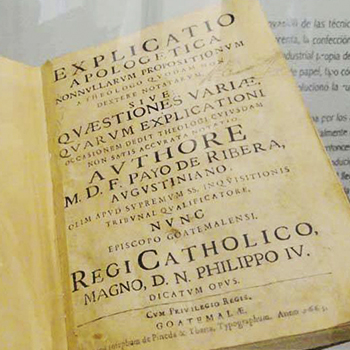 EXPLICATIO
APOLOGETICA
NONNULLARUM PROPOSITIONUM
A THEOLOGO QUODAM NON
DEXTERE NOTATARUM
SIVE
QUÆSTIONES VARIÆ,
QUARUM EXPLICATIONI
OCCASIONEM DEDIT THEOLOGI CUIUSDAM
NON SATIS ACCURATA NOTATIO.
AVTHORE
M. D. F. PAYO DE RIBERA,
AUGUSTINIANO.
OLIM APUD SUPREMUM SS. INQUISITIONIS
TRIBUNAL QUALIFICATORE,
NUNC
EPISCOPO GOATEMALENSI.
REGI CATHOLICO,
MAGNO, D. N. PHILIPPO IV.
DICATUM OPUS.
CUM PRIVILEGIO REGIS.
GOATEMALÆ
de Pineda Typographum. Anno
de las técnic
la confección
industrial
de papel